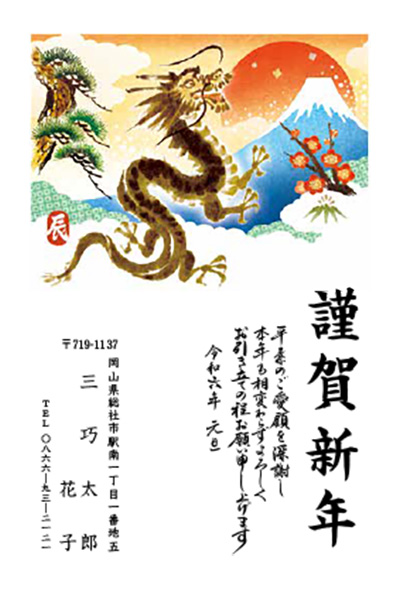 辰
謹賀新年
平素のご愛顧を深謝し
本年も相変わらずよろしく
お引き立ての程お願い申し上げます
令和六年 元旦
〒719-1137
岡山県総社市駅南一丁目一番地五
三巧太郎
花子
TEL 〇八六六-九三-二一二一